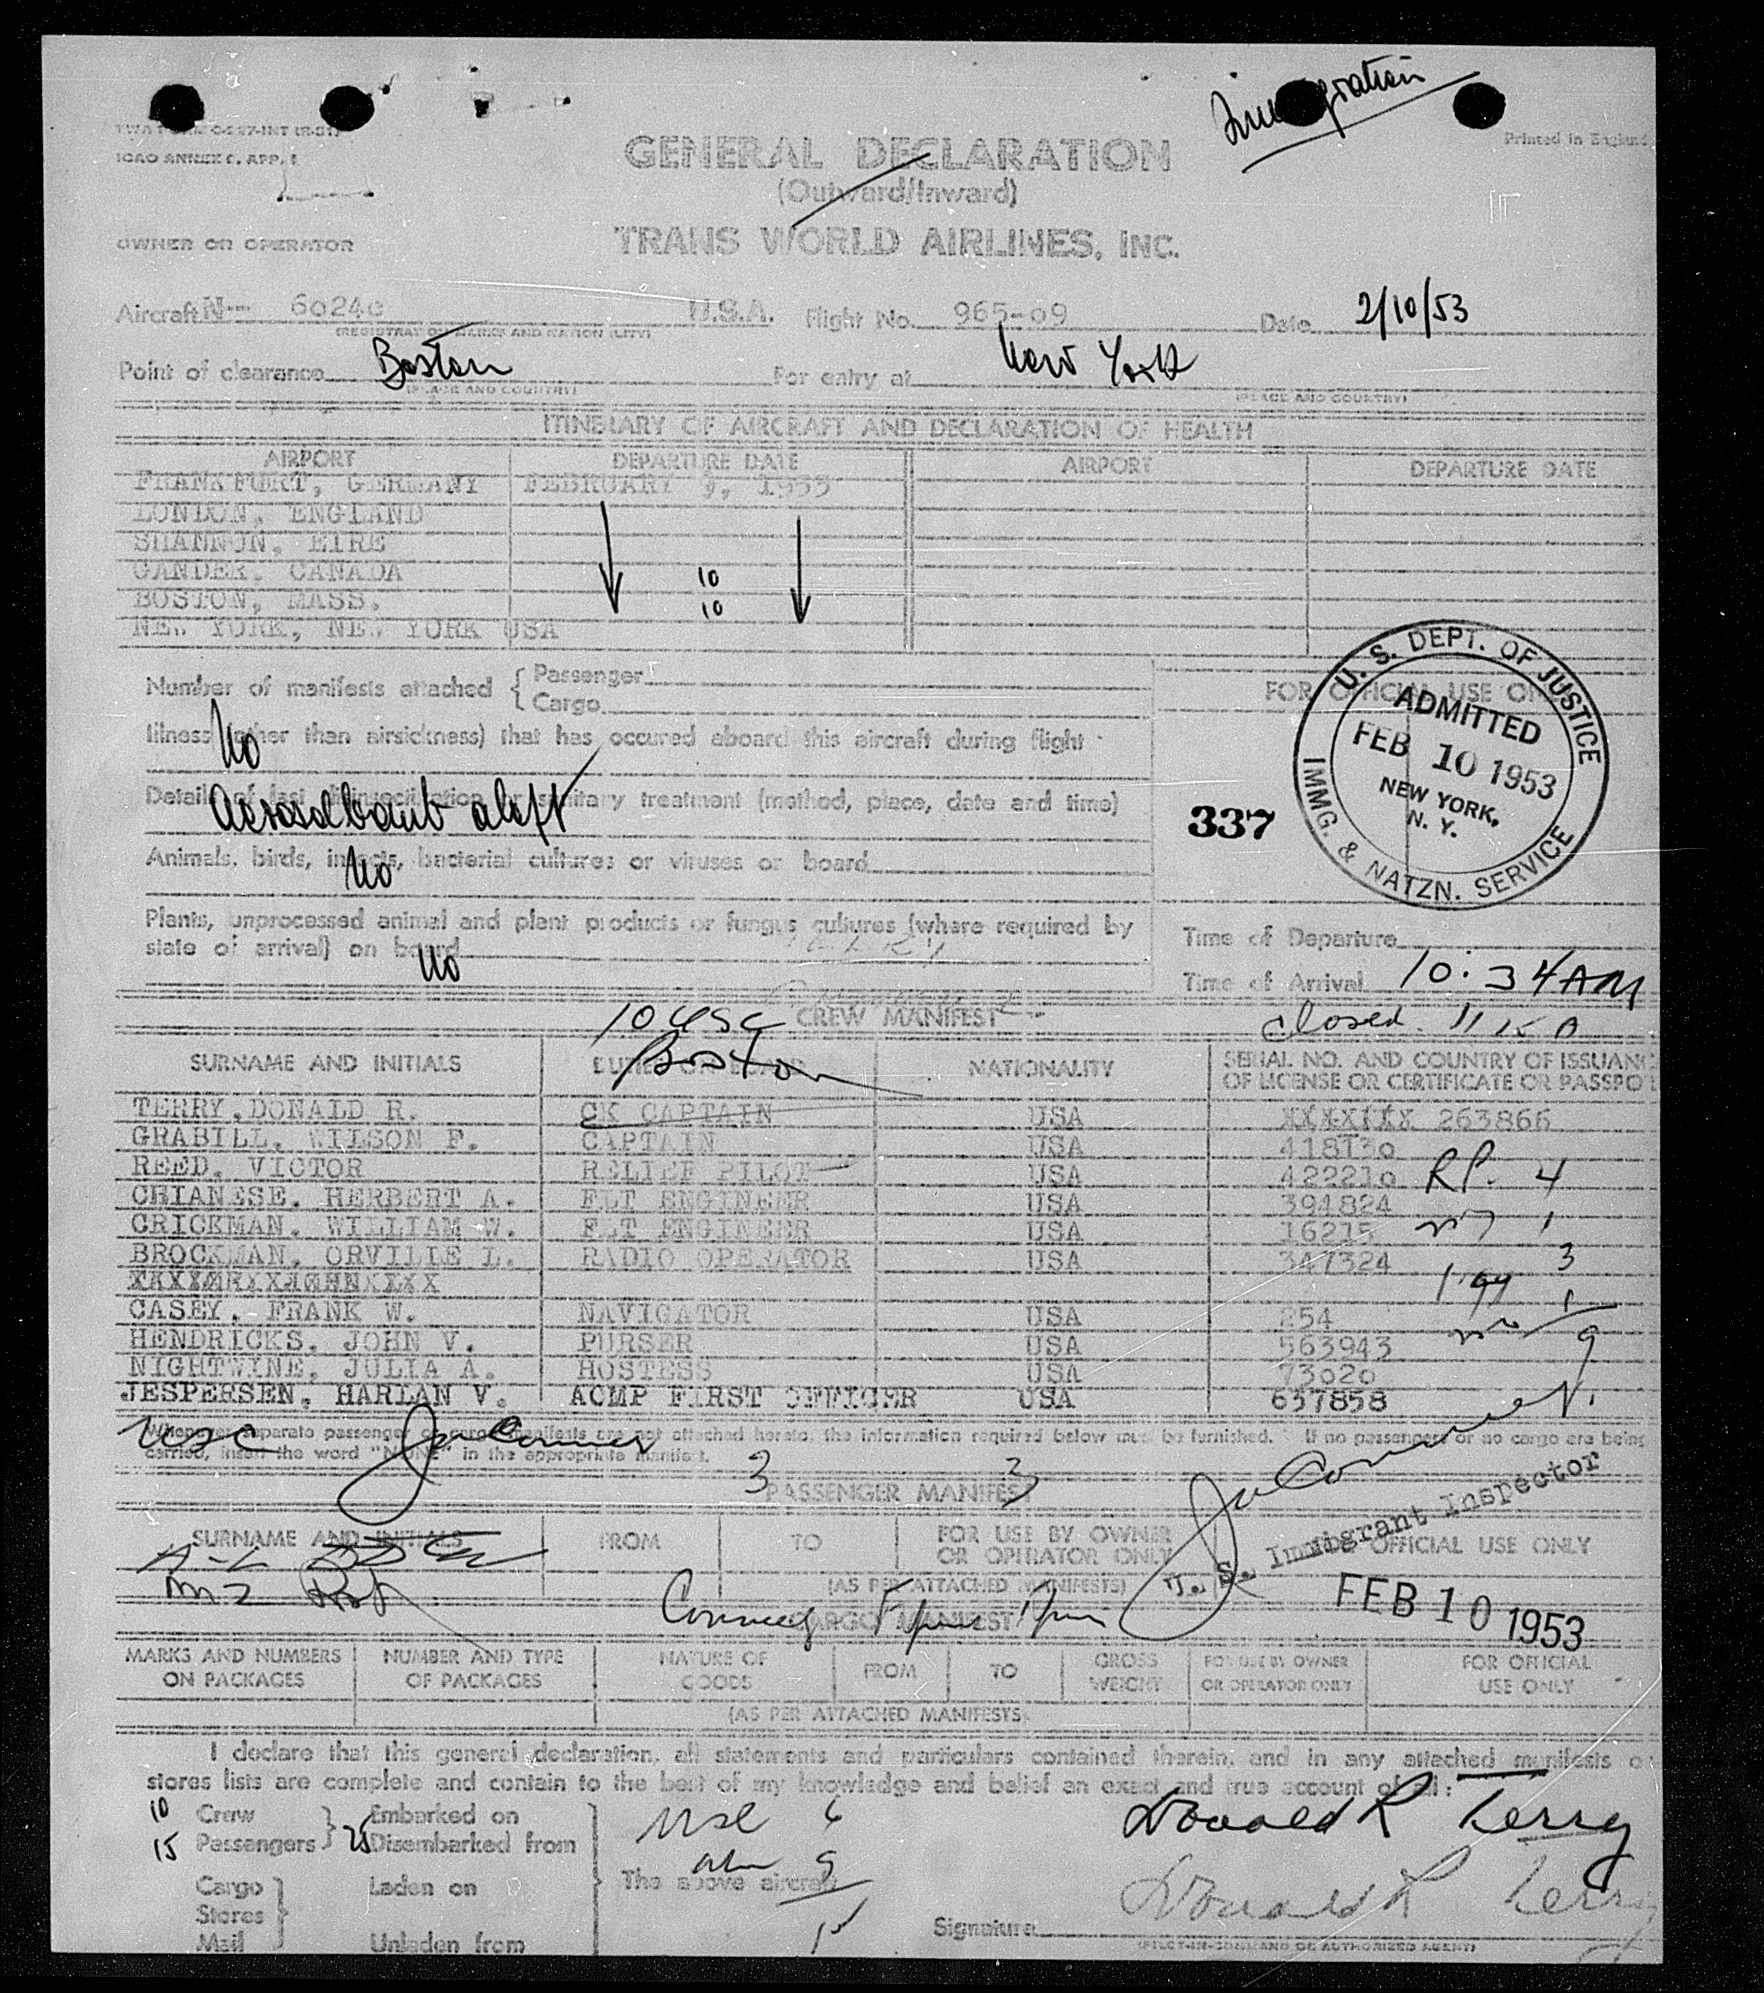 Immigration
TWA FORM C-527-INT (R-51)
ICAO ANNEX 9, APP. 1
Printed in England
GENERAL DECLARATION
(Outward/Inward)
OWNER OR OPERATOR
TRANS WORLD AIRLINES, INC.
Aircraft N-- 6024C U.S.A. Flight No. 965-09 Date 2/10/53
(REGISTRATION MARKS AND NATIONALITY)
Point of clearance Boston For entry at New York
(PLACE AND COUNTRY) (PLACE AND COUNTRY)
ITINERARY OF AIRCRAFT AND DECLARATION OF HEALTH
AIRPORT DEPARTURE DATE AIRPORT DEPARTURE DATE
FRANKFURT, GERMANY FEBRUARY 9, 1953
LONDON, ENGLAND
SHANNON, EIRE
GANDER, CANADA 10
BOSTON, MASS. 10
NEW YORK, NEW YORK USA
Number of manifests attached { Passenger
Cargo
FOR OFFICIAL USE ONLY
U. S. DEPT. OF JUSTICE
ADMITTED
FEB 10 1953
NEW YORK,
N. Y.
IMMG. & NATZN. SERVICE
Illness (other than airsickness) that has occured aboard this aircraft during flight
No
Details of last disinsectization or sanitary treatment (method, place, date and time)
Aerosol bomb aloft
337
Animals, birds, insects, bacterial cultures or viruses on board
No
Plants, unprocessed animal and plant products or fungus cultures (where required by
state of arrival) on board
No
Time of Departure
Time of Arrival 10:34 AM
closed. 11 15 A
10 USC CREW MANIFEST
Boston
SURNAME AND INITIALS DUTIES ON BOARD NATIONALITY SERIAL NO. AND COUNTRY OF ISSUANCE
OF LICENSE OR CERTIFICATE OR PASSPORT
TERRY, DONALD R. CK CAPTAIN USA XXXXXXX 263866
GRABILL, WILSON F. CAPTAIN USA 418130
REED, VICTOR RELIEF PILOT USA 422210 RP. 4
CHIANESE, HERBERT A. FLT ENGINEER USA 391824
CRICKMAN, WILLIAM W. FLT ENGINEER USA 16215 1
BROCKMAN, ORVILLE L. RADIO OPERATOR USA 347324 3
CASEY, FRANK W. NAVIGATOR USA 254 1
HENDRICKS, JOHN V. PURSER USA 563943 9
NIGHTWINE, JULIA A. HOSTESS USA 73020
JESPERSEN, HARLAN V. ACMP FIRST OFFICER USA 637858
Whenever separate passenger or cargo manifests are not attached hereto, the information required below must be furnished. If no passengers or no cargo are being
carried, insert the word "NONE" in the appropriate manifest.
USC
3 3
PASSENGER MANIFEST
U. S. Immigrant Inspector
SURNAME AND INITIALS FROM TO FOR USE BY OWNER
OR OPERATOR ONLY
OFFICIAL USE ONLY
(AS PER ATTACHED MANIFESTS)
FEB 10 1953
CARGO MANIFEST
MARKS AND NUMBERS
ON PACKAGES
NUMBER AND TYPE
OF PACKAGES
NATURE OF
GOODS
FROM TO
GROSS
WEIGHT
FOR USE BY OWNER
OR OPERATOR ONLY
FOR OFFICIAL
USE ONLY
(AS PER ATTACHED MANIFESTS)
I declare that this general declaration, all statements and particulars contained therein, and in any attached manifests or
stores lists are complete and contain to the best of my knowledge and belief an exact and true account of all:
10 Crew Embarked on
15 Passengers 25 Disembarked from
USC 6
9
15
Cargo Laden on The above aircraft
Stores
Mail Unladen from
Donald R Terry
Donald R Terry
Signature
(PILOT-IN-COMMAND OR AUTHORIZED AGENT)